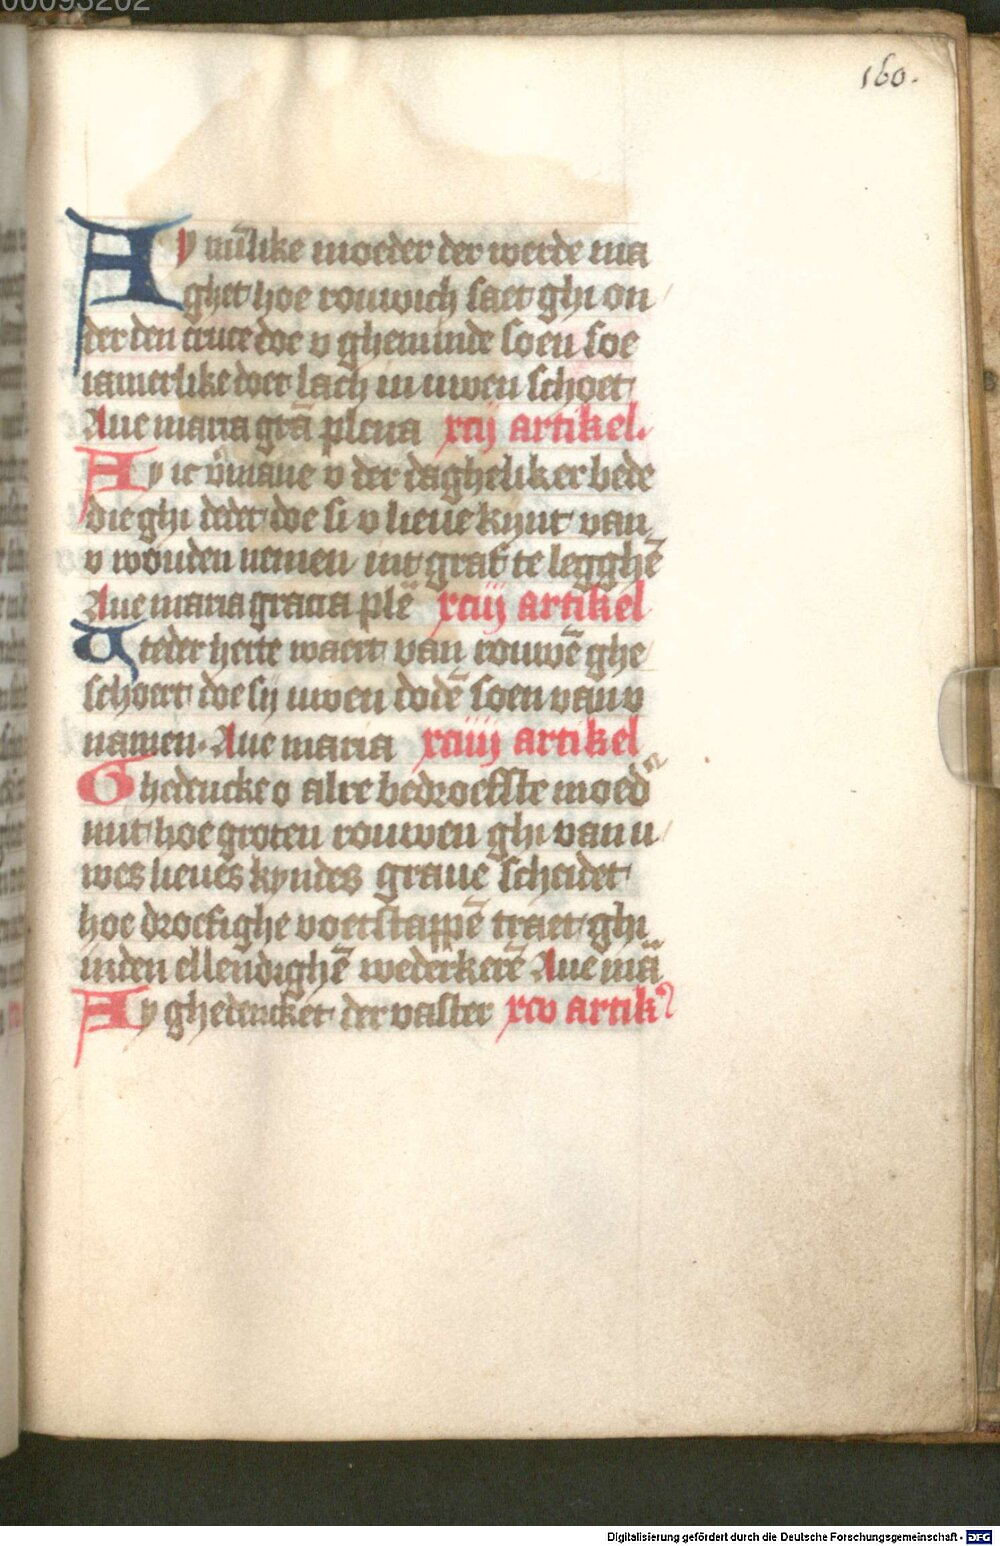 00093202
160.
Ay mı̄like moeder der werde ma
ghet hoe rouwich saet ghi on
der den cruce doe v gheminde soen soe
iamerlike doet lach in uwen schoet
Aue maria grā plena xcij artikel.
Ay ic v̄mane v der dagheliker bede
die ghi dedet doe si v lieue kynt van
v wouden nemen int graf te legghē
Aue maria gracia plē xciij artikel
U teder herte waert van rouwē ghe
schoert doe sij uwen dodē soen van v
namen. Aue maria xciiij artikel
Ghedencke o alre bedroeffste moed
mit hoe groten rouwen ghi van u
wes lieues kyndes graue scheidet
hoe droefighe voetstappē traet ghi
inden ellendighē wederkerē Aue mā
Ay ghedencket der vaster xcv artik
Digitalisierung gefördert durch die Deutsche Forschungsgemeinschaft - DFG